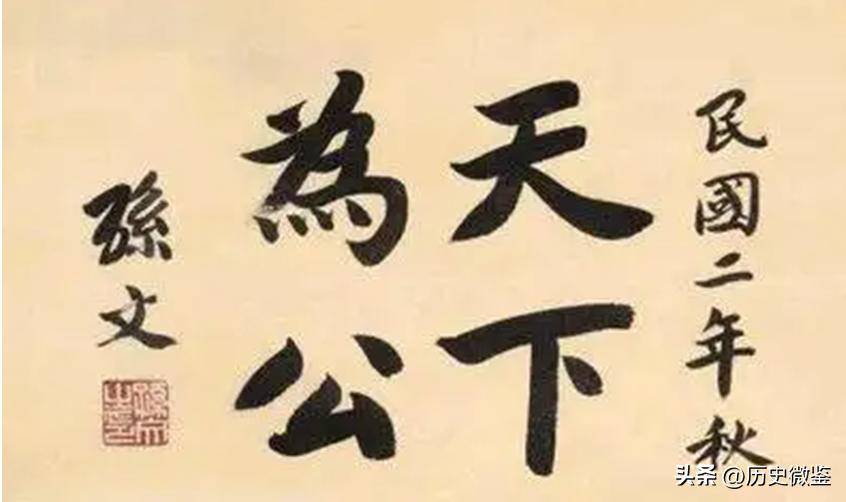 民國二年秋
天下
為公
孫文
头条 @历史微鉴